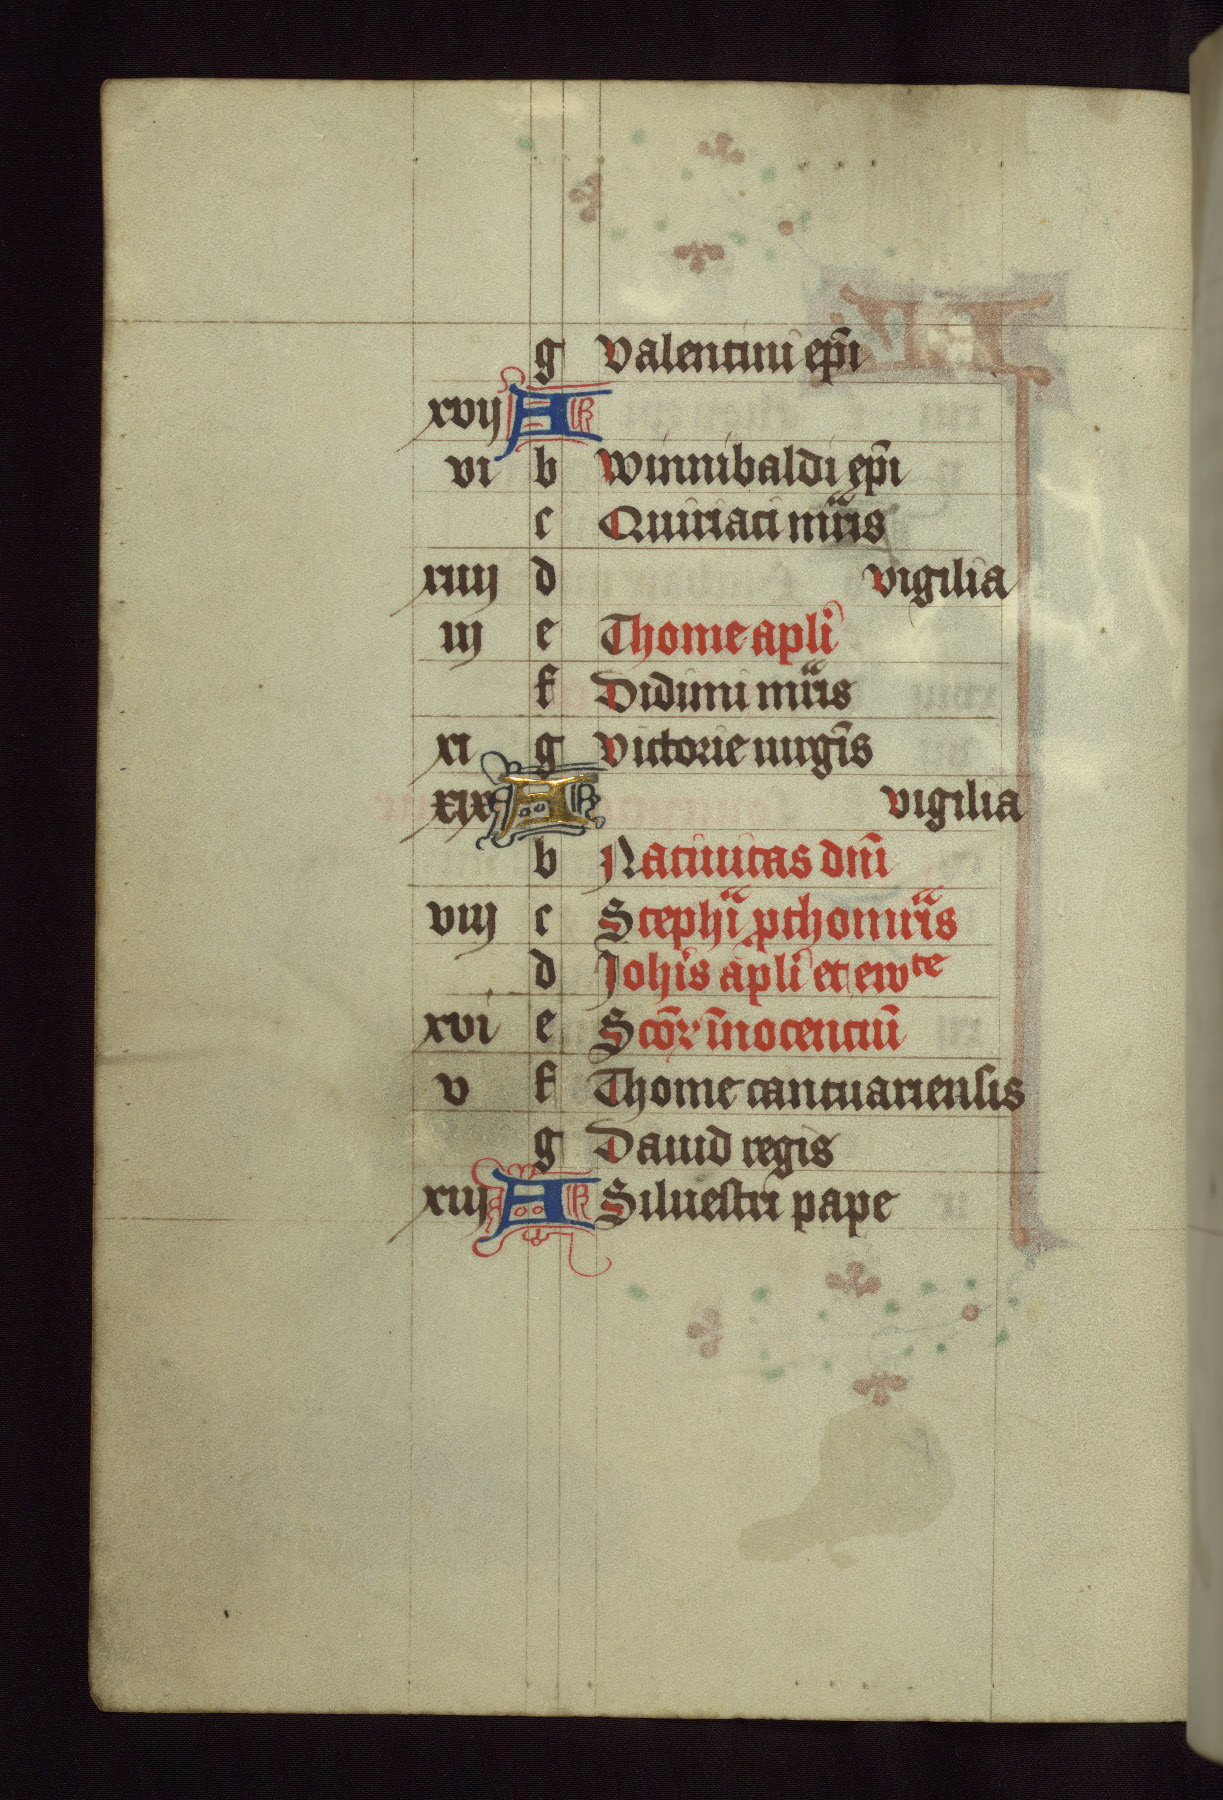 g Valentini ep̄i
xvij A
vi b Winnibaldi ep̄i
c Quiriaci mr̄is
xiiij d vigilia
iij e Thome apl̄i
f Didimi mr̄is
xi g Victorie uirgīs
xix A vigilia
b Natiuitas dn̄i
viij c Steph̄i ꝓthomr̄is
d Joh̄is apl̄i et ewᵗᵉ
xvi e Scōꝝ īnocenciū
v f Thome cantuariensis
g Dauid regis
xiij A Siluestri pape